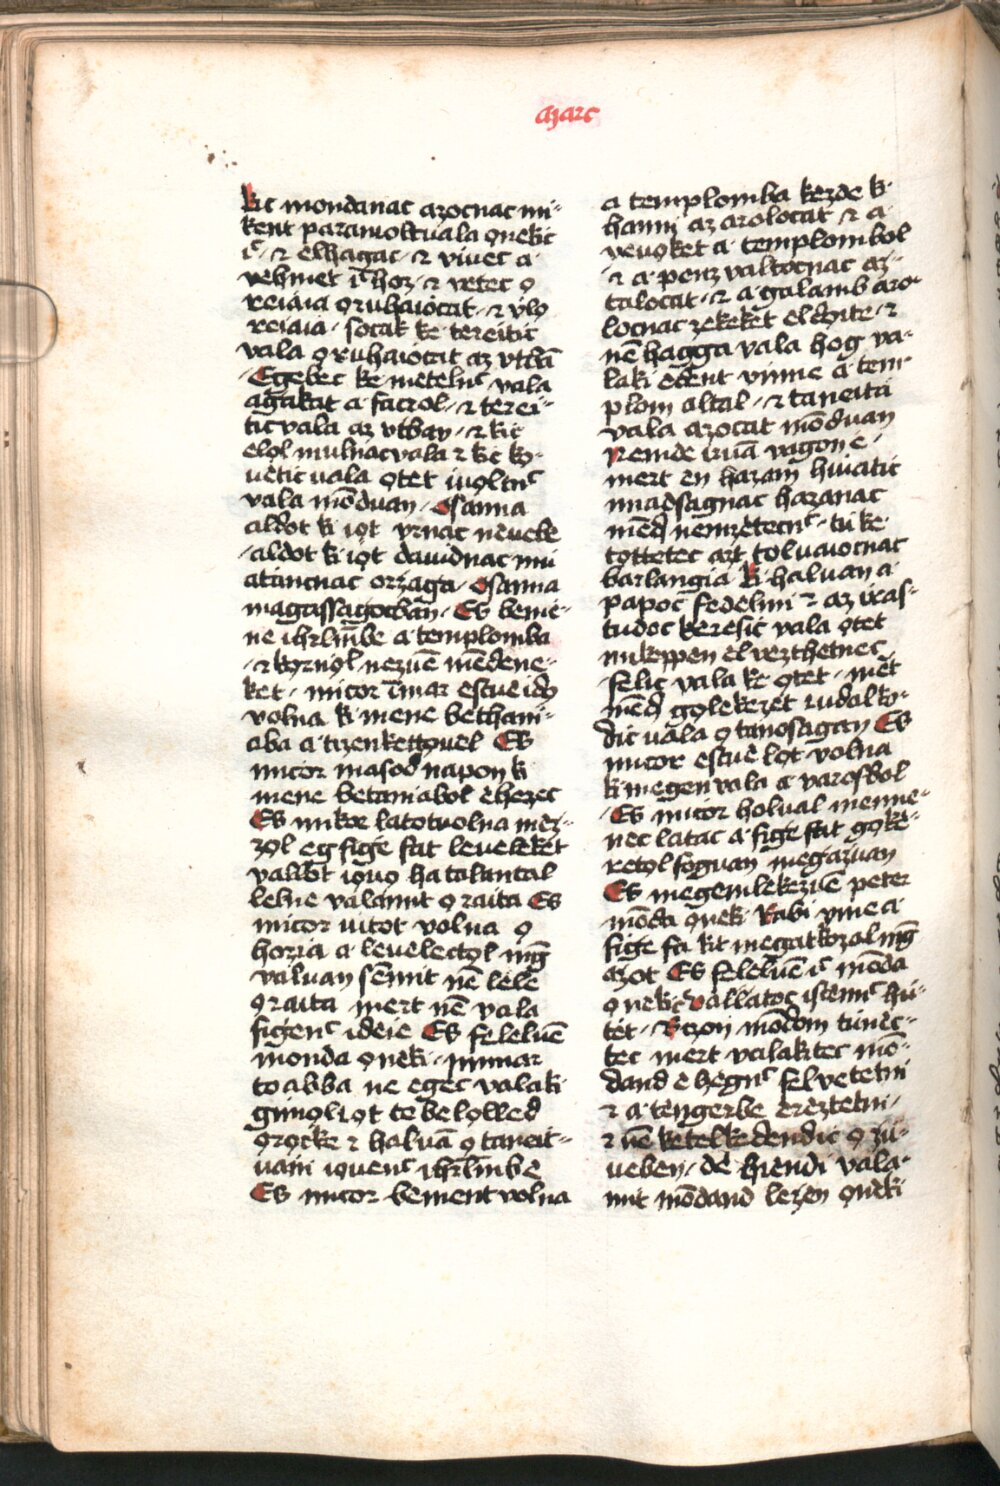 marc
kic mondanac azocnac mi-
kent parancoltuala qnekic
ic · ⁊ elhagac · ⁊ viuec a
vehmet ichoz · ⁊ vetec ǫ
reiaia ǫruhaiocat · ⁊ vlǫ
reiaia · socak ke tereitic
vala ǫruhaiocat az vtbā
Egebec ke metelnc vala
agakat a facrol · ⁊ terei-
tic vala az vtban · ⁊ kic
elǫl mulnac vala ⁊ kic kǫ-
uetic vala ǫtet iuǫltnc
vala mōduan · Osanna
aldot ki iǫt vrnac neuebe
· aldot ki iǫt dauidnac mi
atancnac orzaga · Osanna
magassagocban · Es beme-
ne ihrlmbe a templomba
· ⁊ kǫrnǫl nezuē mēdene-
ket · micor immar estue idǫ
volna ki mene bethani-
aba a tizenkettǫuel Es
micor masod napon ki
mene betaniabol ehezec
Es mikor latotuolna mez-
zǫl eg fige fat leueleket
vallot iǫuǫ ha talantal
lelne valamit ǫ raita Es
micor iutot volna ǫ
hozia a leuelectǫl mg
valuan semmit nē lele
ǫ raita mert nē vala
figenc ideie Es feleluē
monda ǫneki · immar
toabba ne egec valaki
gimǫlcǫt te belǫlled
ǫrǫcke ⁊ haluā ǫ taneit-
uani iǫuenc ihrlmbe
Es micor bement volna
a templomba kezde ki
hanni az arolocat ⁊ a
veuǫket a templombol
· ⁊ a penz valtocnac az-
talocat · ⁊ a galamb aro-
locnac zekeket eldǫite · ⁊
nē hagga vala hog va-
laki edent vinne a tem
plom altal · ⁊ taneita
vala azocat mōduan
Nemde iruā vagon e ·
mert en hazam hiuatic
imadsagnac hazanac
mēd nemzetecnc · tu ke
tǫttetec azt toluaiocnac
barlangia Ki haluan a
papoc fedelmi ⁊ az iras-
tudoc keresic vala ǫtet
mikeppen el vezthetnec
felic vala ke ǫtet · mert
mēd gǫlekezet ǯudalko-
dic vala ǫ tanosagan Es
micor estue lǫt volna
ki megen vala a varosbol
· Es micor holual menne-
nec latac a fige fat gǫke-
retǫl foguan megazuan
Es megemlekezuē peter
mōda ǫneki · Rabi yme a
fige fa kit megatkozal mg
azot Es felelvē ic mōda
ǫnekic vallatoc istennc hi-
tet · Bizon mōdom tūnec-
tec mert valakitec mō-
dand e hegnc fel vetetni
⁊ a tengerbe ereztetni ·
⁊ nē ketelkedendic ǫ zi-
ueben · de hiendi vala-
mit mōdand lezen ǫneki